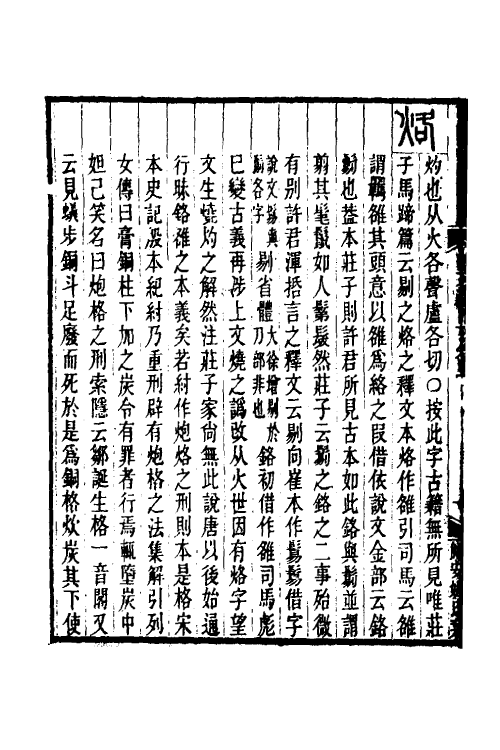 烙
灼也从火各聲盧各切○按此字古籍無所見唯莊
子馬蹄篇云剔之烙之釋文本烙作雒引司馬云雒
謂羈雒其頭意以雒爲絡之叚借依說文金部云鉻
鬄也葢本莊子則許君所見古本如此鉻與鬄並謂
翦其髦鬣如人鬄髮然莊子云鬄之鉻之二事殆微
有別許君渾括言之釋文云剔向崔本作鬄鬄借字
說文鬄與鬀各字
剔省體
大徐增剔於刀部非也
鉻初借作雒司馬彪
巳變古義再涉上文燒之譌改从火世因有烙字望
文生燒灼之解然注莊子家尚無此說唐以後始通
行昧鉻雒之本義矣若紂作炮烙之刑則本是格宋
本史記殷本紀紂乃重刑辟有炮格之法集解引列
女傳曰膏銅柱下加之炭令有罪者行焉輒墮炭中
妲己笑名曰炮格之刑索隱云鄒誕生格一音閣又
云見蟻步銅斗足廢而死於是爲銅格炊炭其下使